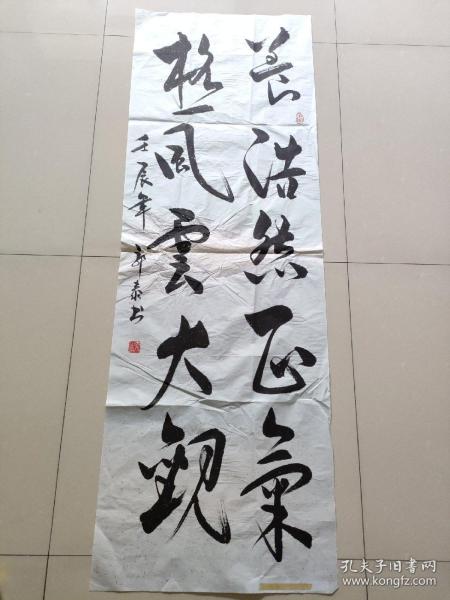 养浩然正氣
極風雲大觀
壬辰年
泰书
孔夫子旧书网
www.kongfz.com